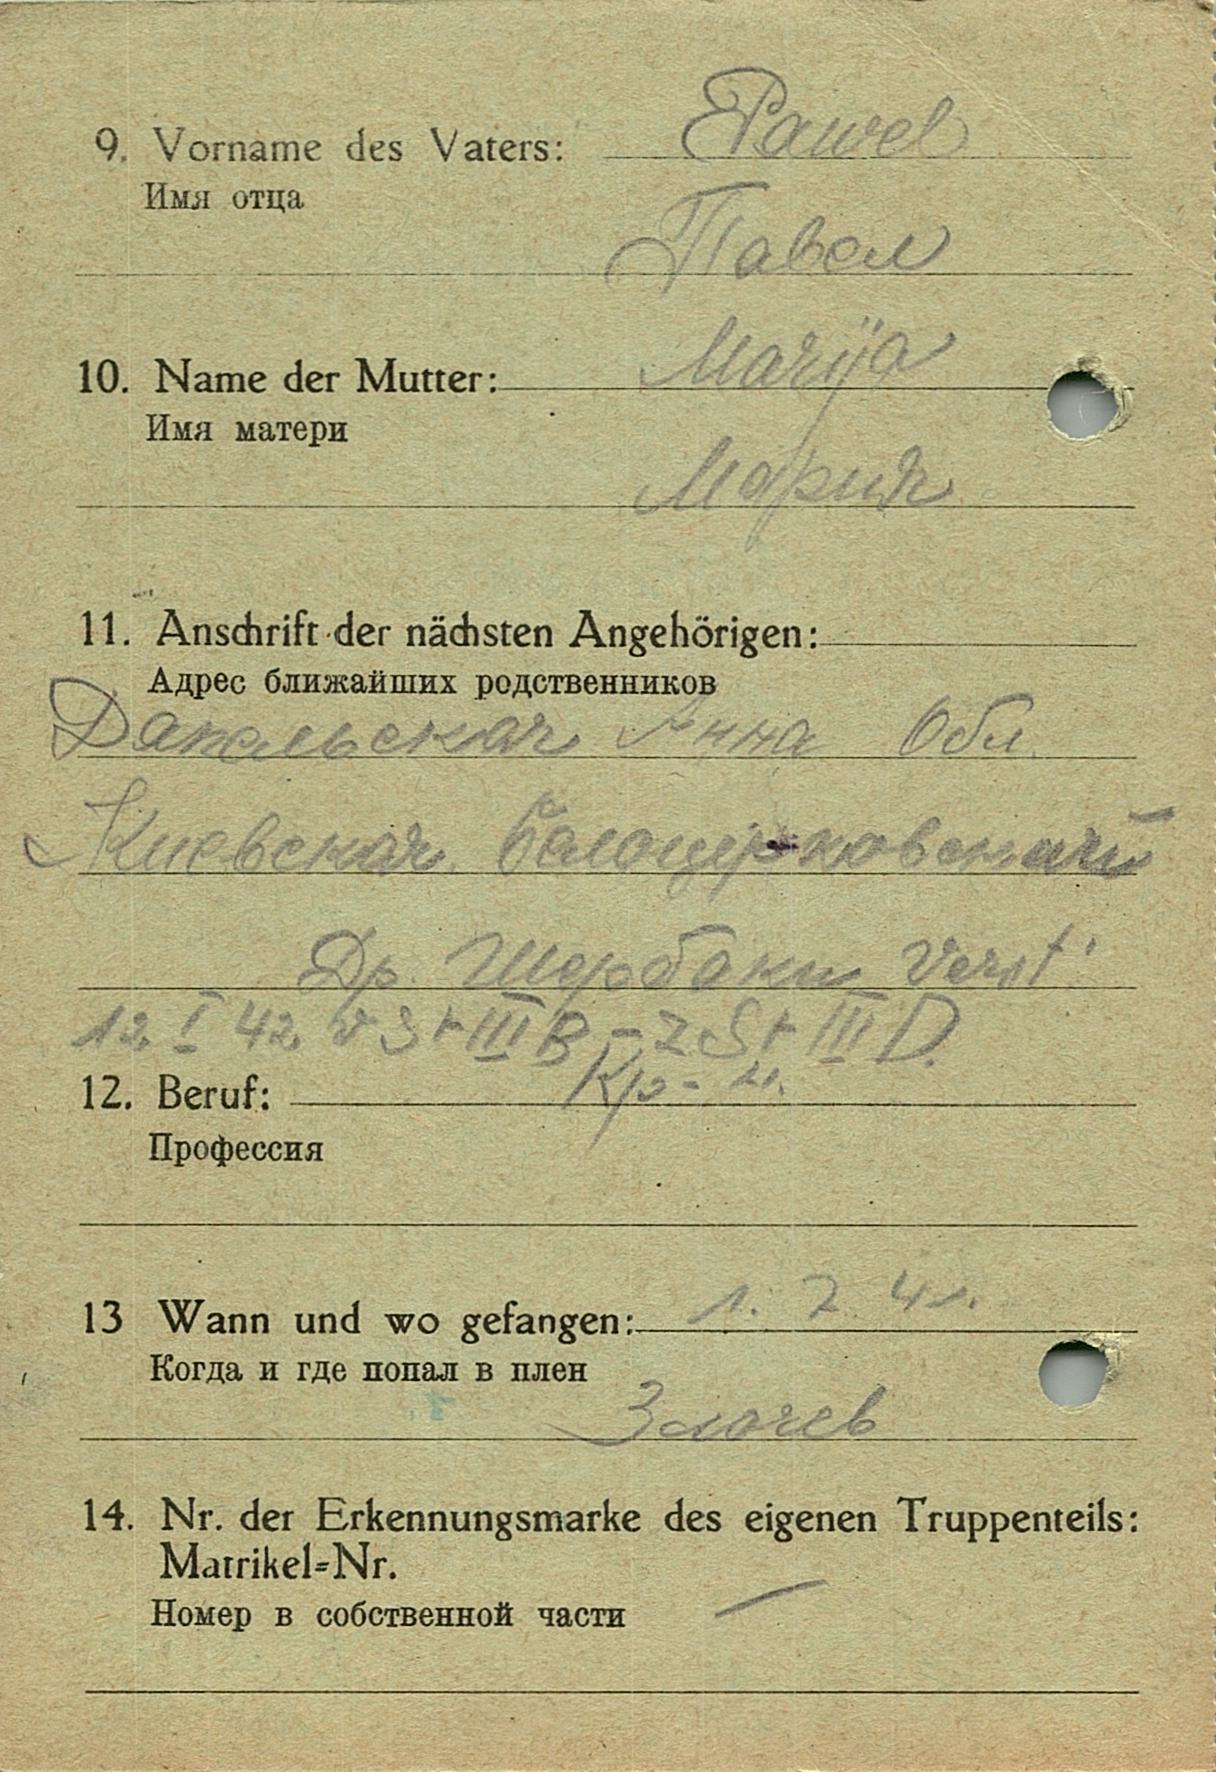 9. Vorname des Vaters: Pawel
Имя отца
Павел
10. Name der Mutter: Marija
Имя матери
Мария
11. Anschrift der nächsten Angehörigen:
Адрес ближайших родственников
Анна Обл.
Киевская
Др. Verst.
12. I 42 v St III B - Z St III D.
12. Beruf: Кр-н.
Профессия
13 Wann und wo gefangen: 1. 7 41.
Когда и где попал в плен
Злочев
14. Nr. der Erkennungsmarke des eigenen Truppenteils:
Matrikel=Nr.
Номер в собственной части —